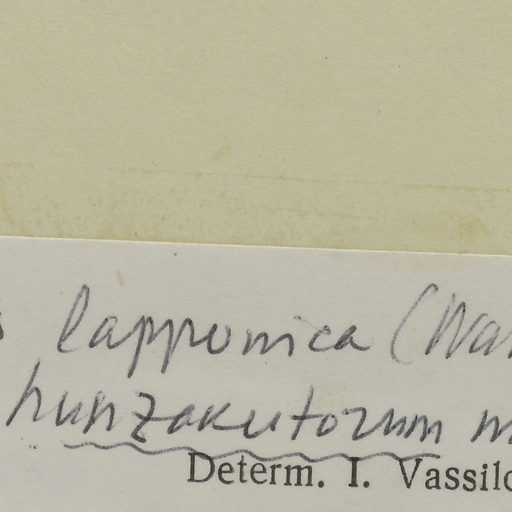 lapponica (Wah
hunzakutorum
Determ. I. Vassilc